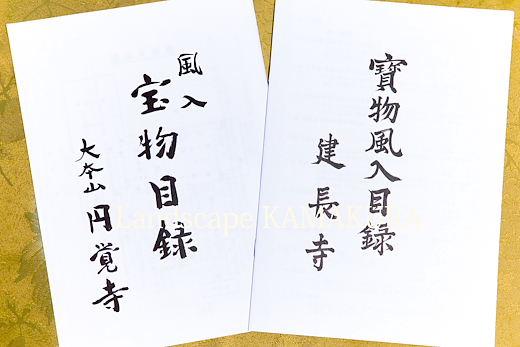 寳物風入目録
建長寺
風入
宝物目録
大本山円覚寺
Landscape KAMAKURA